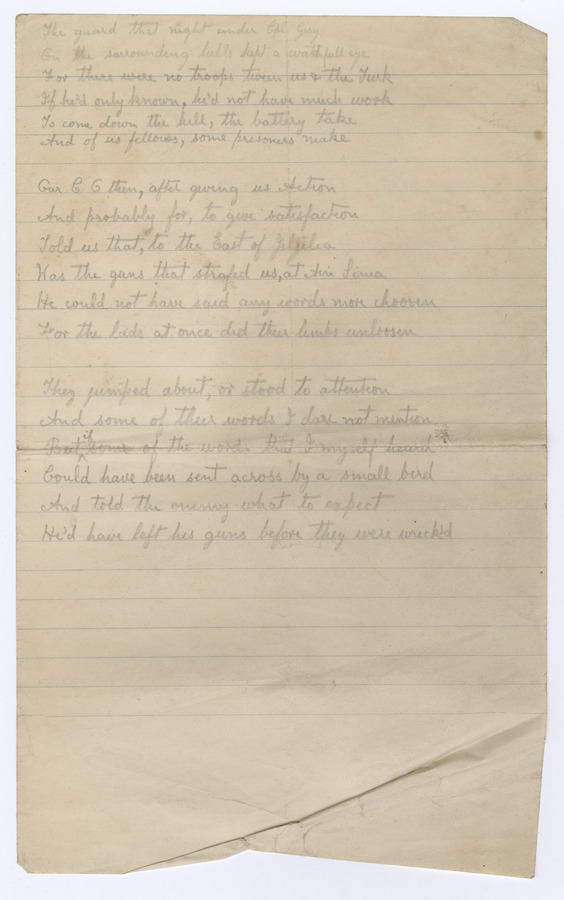 The guard that night under Cpl Guy
On the surrounding hills kept a watchfull eye
For there were no troops tween us & the Turk
If he'd only known, he'd not have much work
To come down the hill, the battery take
And of us fellows, some prisoners make
Our C O then, after giving us Action
And probably for, to give satisfaction
Told us that, to the East of Jiljilea
Was the guns that strafed us, at Ain Sinia
He could not have said any words more choosen
For the lads at once did their limbs unloosen
They jumped about, or stood to attention
And some of their words I dare not mention
But if some of the words that I myself heard
Could have been sent across by a small bird
And told the enemy what to expect
He'd have left his guns before they were wreck'd